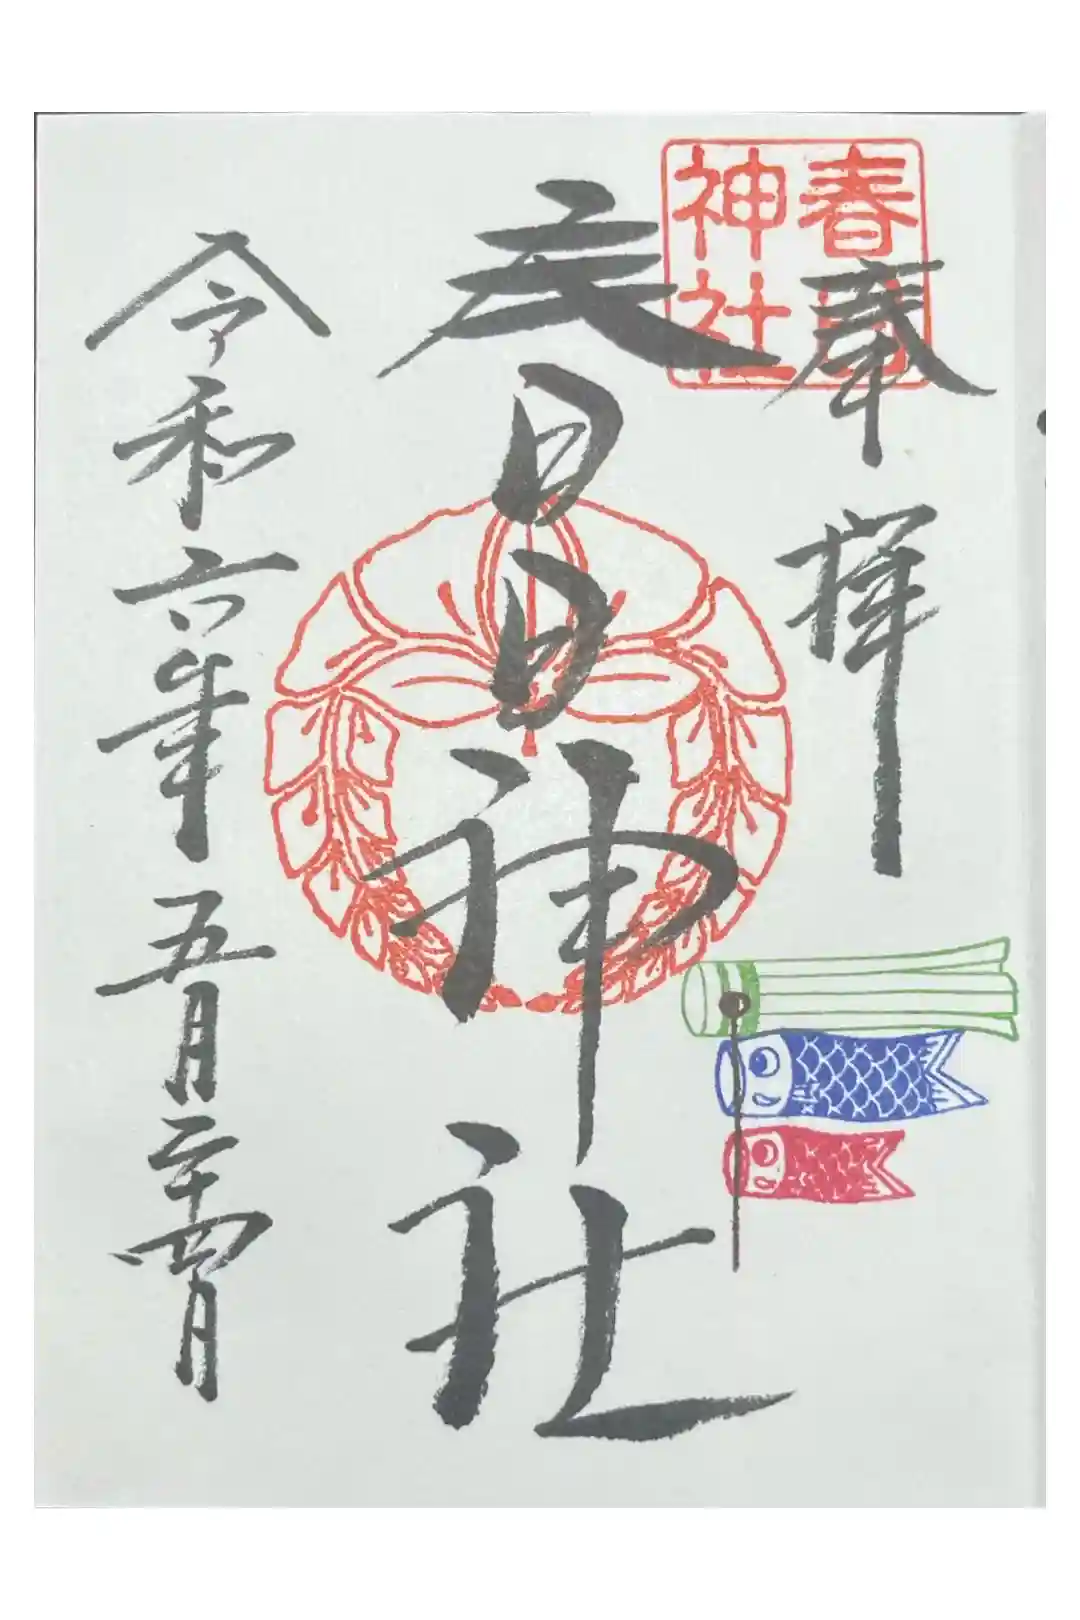 奉拝
春日
神社
春日神社
令和六年五月二十四日